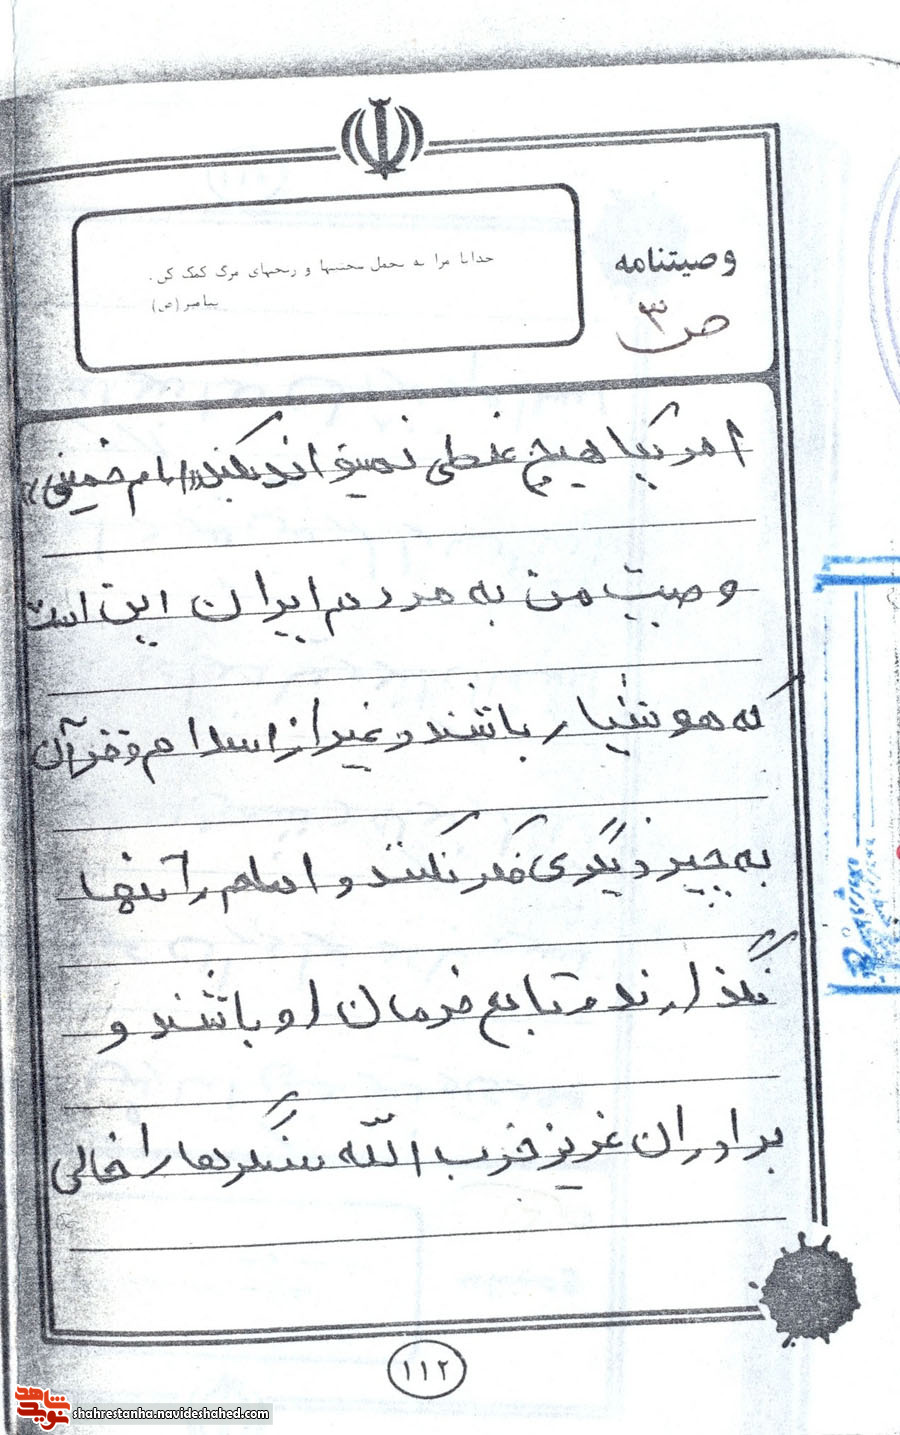 خدایا مرا به تحمل سختیها و رنجهای مرگ کمک کن.
پیامبر (ص)
وصیتنامه
ص ۳
امریکا هیچ غلطی نمیتواند بکند «امام خمینی»
وصیت من به مردم ایران این است
که هوشیار باشند و غیر از اسلام و قرآن
به چیز دیگری فکر نکنند و امام را تنها
نگذارند و تابع فرمان او باشند و
برادران عزیز حزب الله سنگرها را خالی
۱۱۲
نوید شاهد
shahrestanha.navideshahed.com